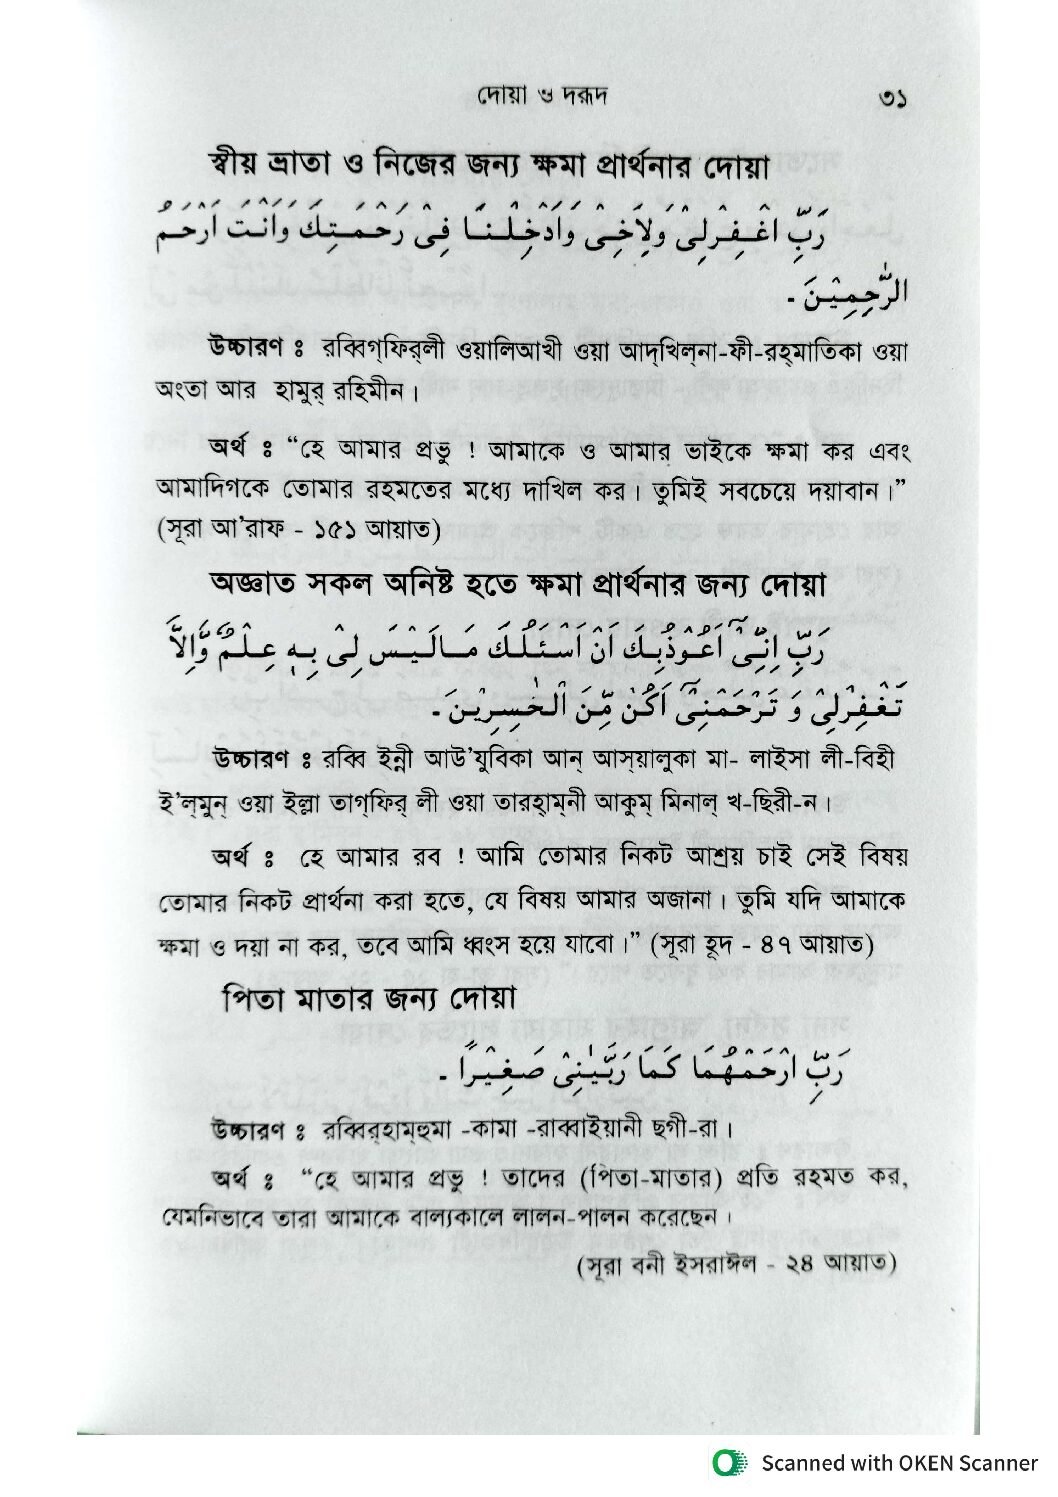 দোয়া ও দরূদ ৩১
স্বীয় ভ্রাতা ও নিজের জন্য ক্ষমা প্রার্থনার দোয়া
رَبِّ اغْفِرْلِىْ وَلِاَخِىْ وَاَدْخِلْنَا فِىْ رَحْمَتِكَ وَاَنْتَ اَرْحَمُ
الرّٰحِمِيْنَ ۔
উচ্চারণ ঃ রব্বিগ্‌ফির্‌লী ওয়ালিআখী ওয়া আদ্‌খিল্‌না-ফী-রহ্‌মাতিকা ওয়া
অংতা আর হামুর্ রহিমীন।
অর্থ ঃ “হে আমার প্রভু ! আমাকে ও আমার ভাইকে ক্ষমা কর এবং
আমাদিগকে তোমার রহমতের মধ্যে দাখিল কর। তুমিই সবচেয়ে দয়াবান।”
(সূরা আ’রাফ - ১৫১ আয়াত)
অজ্ঞাত সকল অনিষ্ট হতে ক্ষমা প্রার্থনার জন্য দোয়া
رَبِّ اِنِّىْٓ اَعُوْذُبِكَ اَنْ اَسْئَلُكَ مَالَيْسَ لِىْ بِهٖ عِلْمٌ وَّاِلَّا
تَغْفِرْلِىْ وَ تَرْحَمْنِىْٓ اَكُنْ مِّنَ الْخٰسِرِيْنَ۔
উচ্চারণ ঃ রব্বি ইন্নী আউ’যুবিকা আন্ আস্‌য়ালুকা মা- লাইসা লী-বিহী
ই’ল্‌মুন্ ওয়া ইল্লা তাগ্‌ফির্ লী ওয়া তারহাম্‌নী আকুম্ মিনাল্ খ-ছিরী-ন।
অর্থ ঃ হে আমার রব ! আমি তোমার নিকট আশ্রয় চাই সেই বিষয়
তোমার নিকট প্রার্থনা করা হতে, যে বিষয় আমার অজানা। তুমি যদি আমাকে
ক্ষমা ও দয়া না কর, তবে আমি ধ্বংস হয়ে যাবো।” (সূরা হূদ - ৪৭ আয়াত)
পিতা মাতার জন্য দোয়া
رَبِّ ارْحَمْهُمَا كَمَا رَبَّيٰنِىْ صَغِيْرًا ۔
উচ্চারণ ঃ রব্বির্‌হাম্‌হুমা -কামা -রাব্বাইয়ানী ছগী-রা।
অর্থ ঃ “হে আমার প্রভু ! তাদের (পিতা-মাতার) প্রতি রহমত কর,
যেমনিভাবে তারা আমাকে বাল্যকালে লালন-পালন করেছেন।
(সূরা বনী ইসরাঈল - ২৪ আয়াত)
Scanned with OKEN Scanner